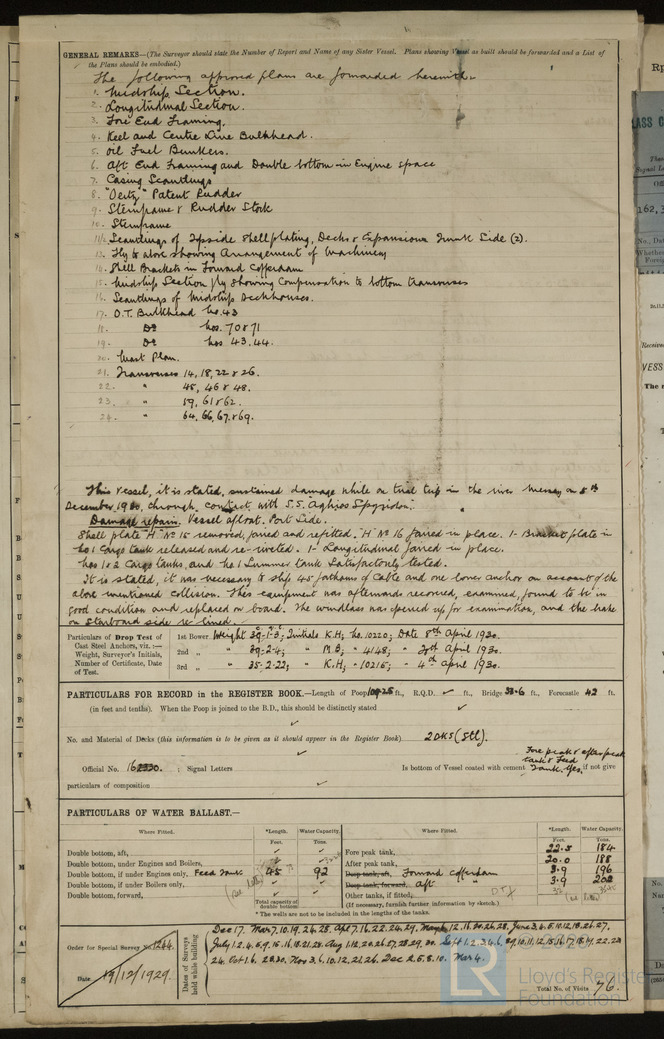 GENERAL REMARKS—(The Surveyor should state the Number of Report and Name of any Sister Vessel. Plans showing Vessel as built should be forwarded and a List of
the Plans should be embodied.)
The following approved plans are forwarded herewith.
1. Midship Section.
2. Longitudinal Section.
3. Fore End Framing.
4. Keel and Centre Line Bulkhead.
5. Oil Fuel Bunkers.
6. Aft End Framing and Double bottom in Engine space
7. Casing Scantlings
8. "Oertz" Patent Rudder
9. Sternframe & Rudder Stock
10. Sternframe
Scantlings of Topside Shell plating, Decks & Expansion Trunk Side (2).
13. Fly to above showing Arrangement of Machinery
14. Shell Brackets in Forward Cofferdam
15. Midship Section fly showing Compensation to bottom transverses
16. Scantlings of Midship Deckhouses.
17. O.T. Bulkhead No. 43
18. Do Nos. 70 & 71
19. Do Nos. 43, 44.
20. Mast Plan.
21. Transverses 14, 18, 22 & 26.
22. " 45, 46 & 48.
23. " 59, 61 & 62.
24. " 64, 66, 67 & 69.
This vessel, it is stated, sustained damage while on trial trip in the river Mersey on 5th
December 1930, through contact with S.S. Aghios Spyridon.
Damage repairs. Vessel afloat. Port Side.
Shell plate "H" No 15 removed, faired and refitted. "H" No 16 faired in place. 1- Bracket plate in
No 1 Cargo tank released and re-riveted. 1- Longitudinal faired in place.
Nos 1 & 2 Cargo tanks, and No 1 Summer tank Satisfactorily tested.
It is stated, it was necessary to slip 45 fathoms of Cable and one bower anchor on account of the
above mentioned collision. This equipment was afterwards recovered, examined, found to be in
good condition and replaced on board. The windlass was opened up for examination, and the brake
on Starboard side re-lined.
Particulars of Drop Test of
Cast Steel Anchors, viz.:—
Weight, Surveyor's Initials,
Number of Certificate, Date
of Test.
1st Bower. Weight 39-1-3; Initials K.H; No. 10220; Date 8th April 1930.
2nd " " 39-2-4; " M.B; " 4148; " April 1930.
3rd " " 35-2-22; " K.H; " 10215; " 4th April 1930.
PARTICULARS FOR RECORD in the REGISTER BOOK.—Length of Poop ft., R.Q.D. ✓ ft., Bridge ft., Forecastle 42 ft.
(in feet and tenths). When the Poop is joined to the B.D., this should be distinctly stated ✓
No. and Material of Decks (this information is to be given as it should appear in the Register Book) 2 DKS (Stl).
Fore peak & after peak
tank & Feed
Official No. ; Signal Letters Is bottom of Vessel coated with cement Tank. Yes. if not give
particulars of composition ✓
PARTICULARS OF WATER BALLAST.—
Where Fitted. *Length. Water Capacity. Where Fitted. *Length. Water Capacity.
Feet. Tons. Feet. Tons.
Double bottom, aft, ✓ ✓ Fore peak tank, 22.5 184
Double bottom, under Engines and Boilers, After peak tank, 20.0 188
Double bottom, if under Engines only, Feed tank 45 92 Deep tank, aft, Forward Cofferdam 3.9 196
Double bottom, if under Boilers only, ✓ ✓ Deep tank, forward, Aft 3.9 202
Double bottom, forward, ✓ ✓ Other tanks, if fitted,
Total capacity of double bottom
(If necessary, furnish further information by sketch.)
* The wells are not to be included in the lengths of the tanks.
Order for Special Survey No. 1264.
Date 19/12/1929.
Dates of Surveys held while building
Dec 17. Mar 7, 10, 19, 24, 25. Apl 7, 16, 22, 24, 29.
24. Oct 1, 6. Nov 3, 6, 10, 12, 21, 26. Dec 2, 5, 8, 10. Mar 4.
Total No. of Visits 76.
LR
© 2020
Lloyd's Register
Foundation